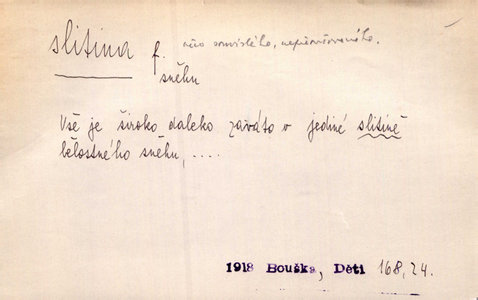 slitina f. něco souvislého, nepřerušovaného.
sněhu
Vše je široko daleko zaváto v jediné slitině
bělostného sněhu, ....
1918 Bouška, Děti 168,24.